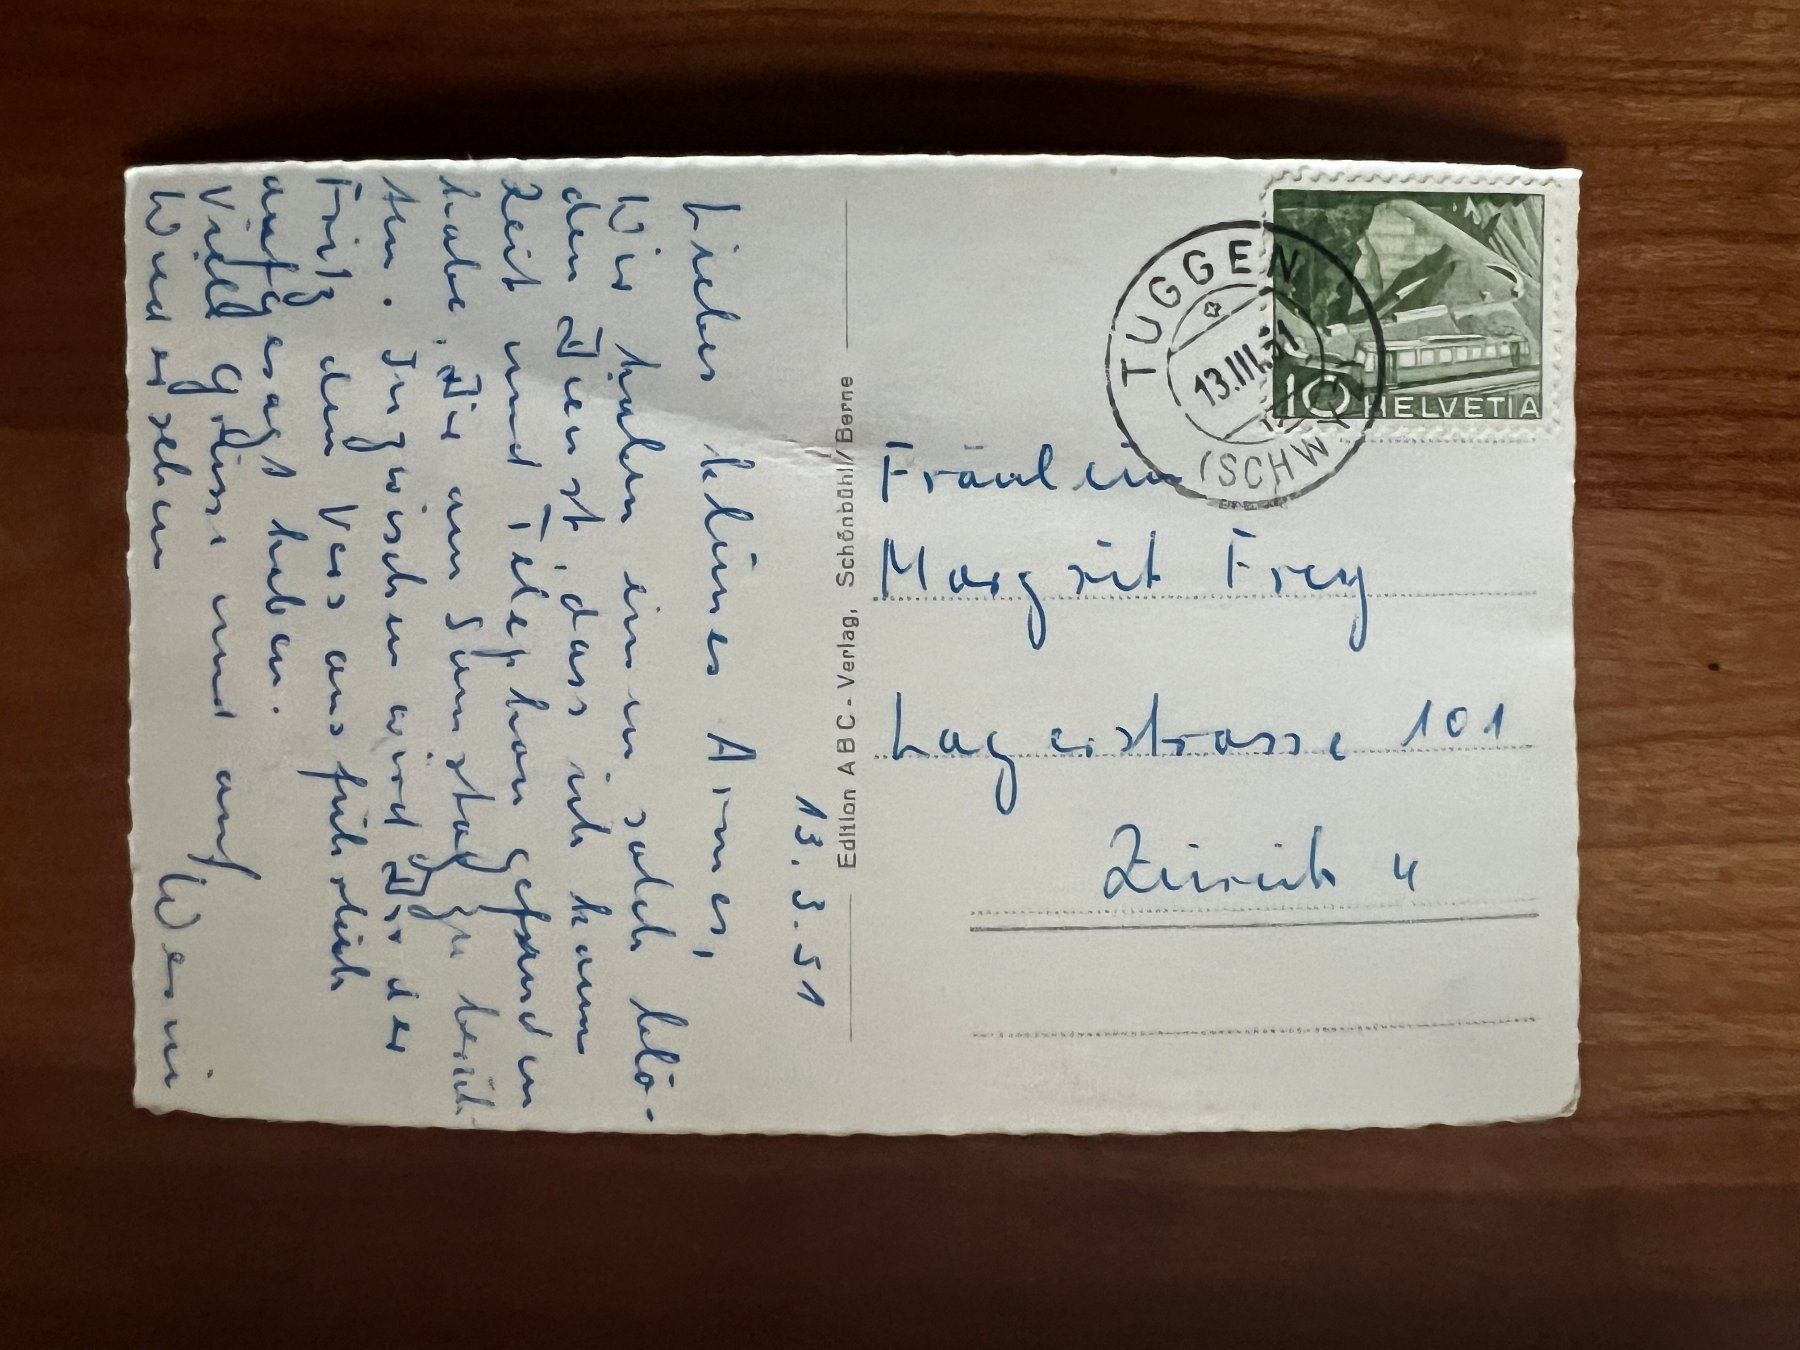 13.3.51
Liebes kleines Armes,
Wir haben einen solch blö-
den Dienst, dass ich kaum
Zeit und Telephon gefunden
habe, Dir am Samstag zu berich-
ten. Inzwischen wird Dir der
Fritz den Vers ausführlich
aufgesagt haben.
Viele Grüsse und auf
Wiedersehen Werni
Edition ABC-Verlag, Schönbühl/Berne
TUGGEN
13.III.51
(SCHWYZ)
10 HELVETIA
Fräulein
Margrit Frey
Lagerstrasse 101
Zürich 4